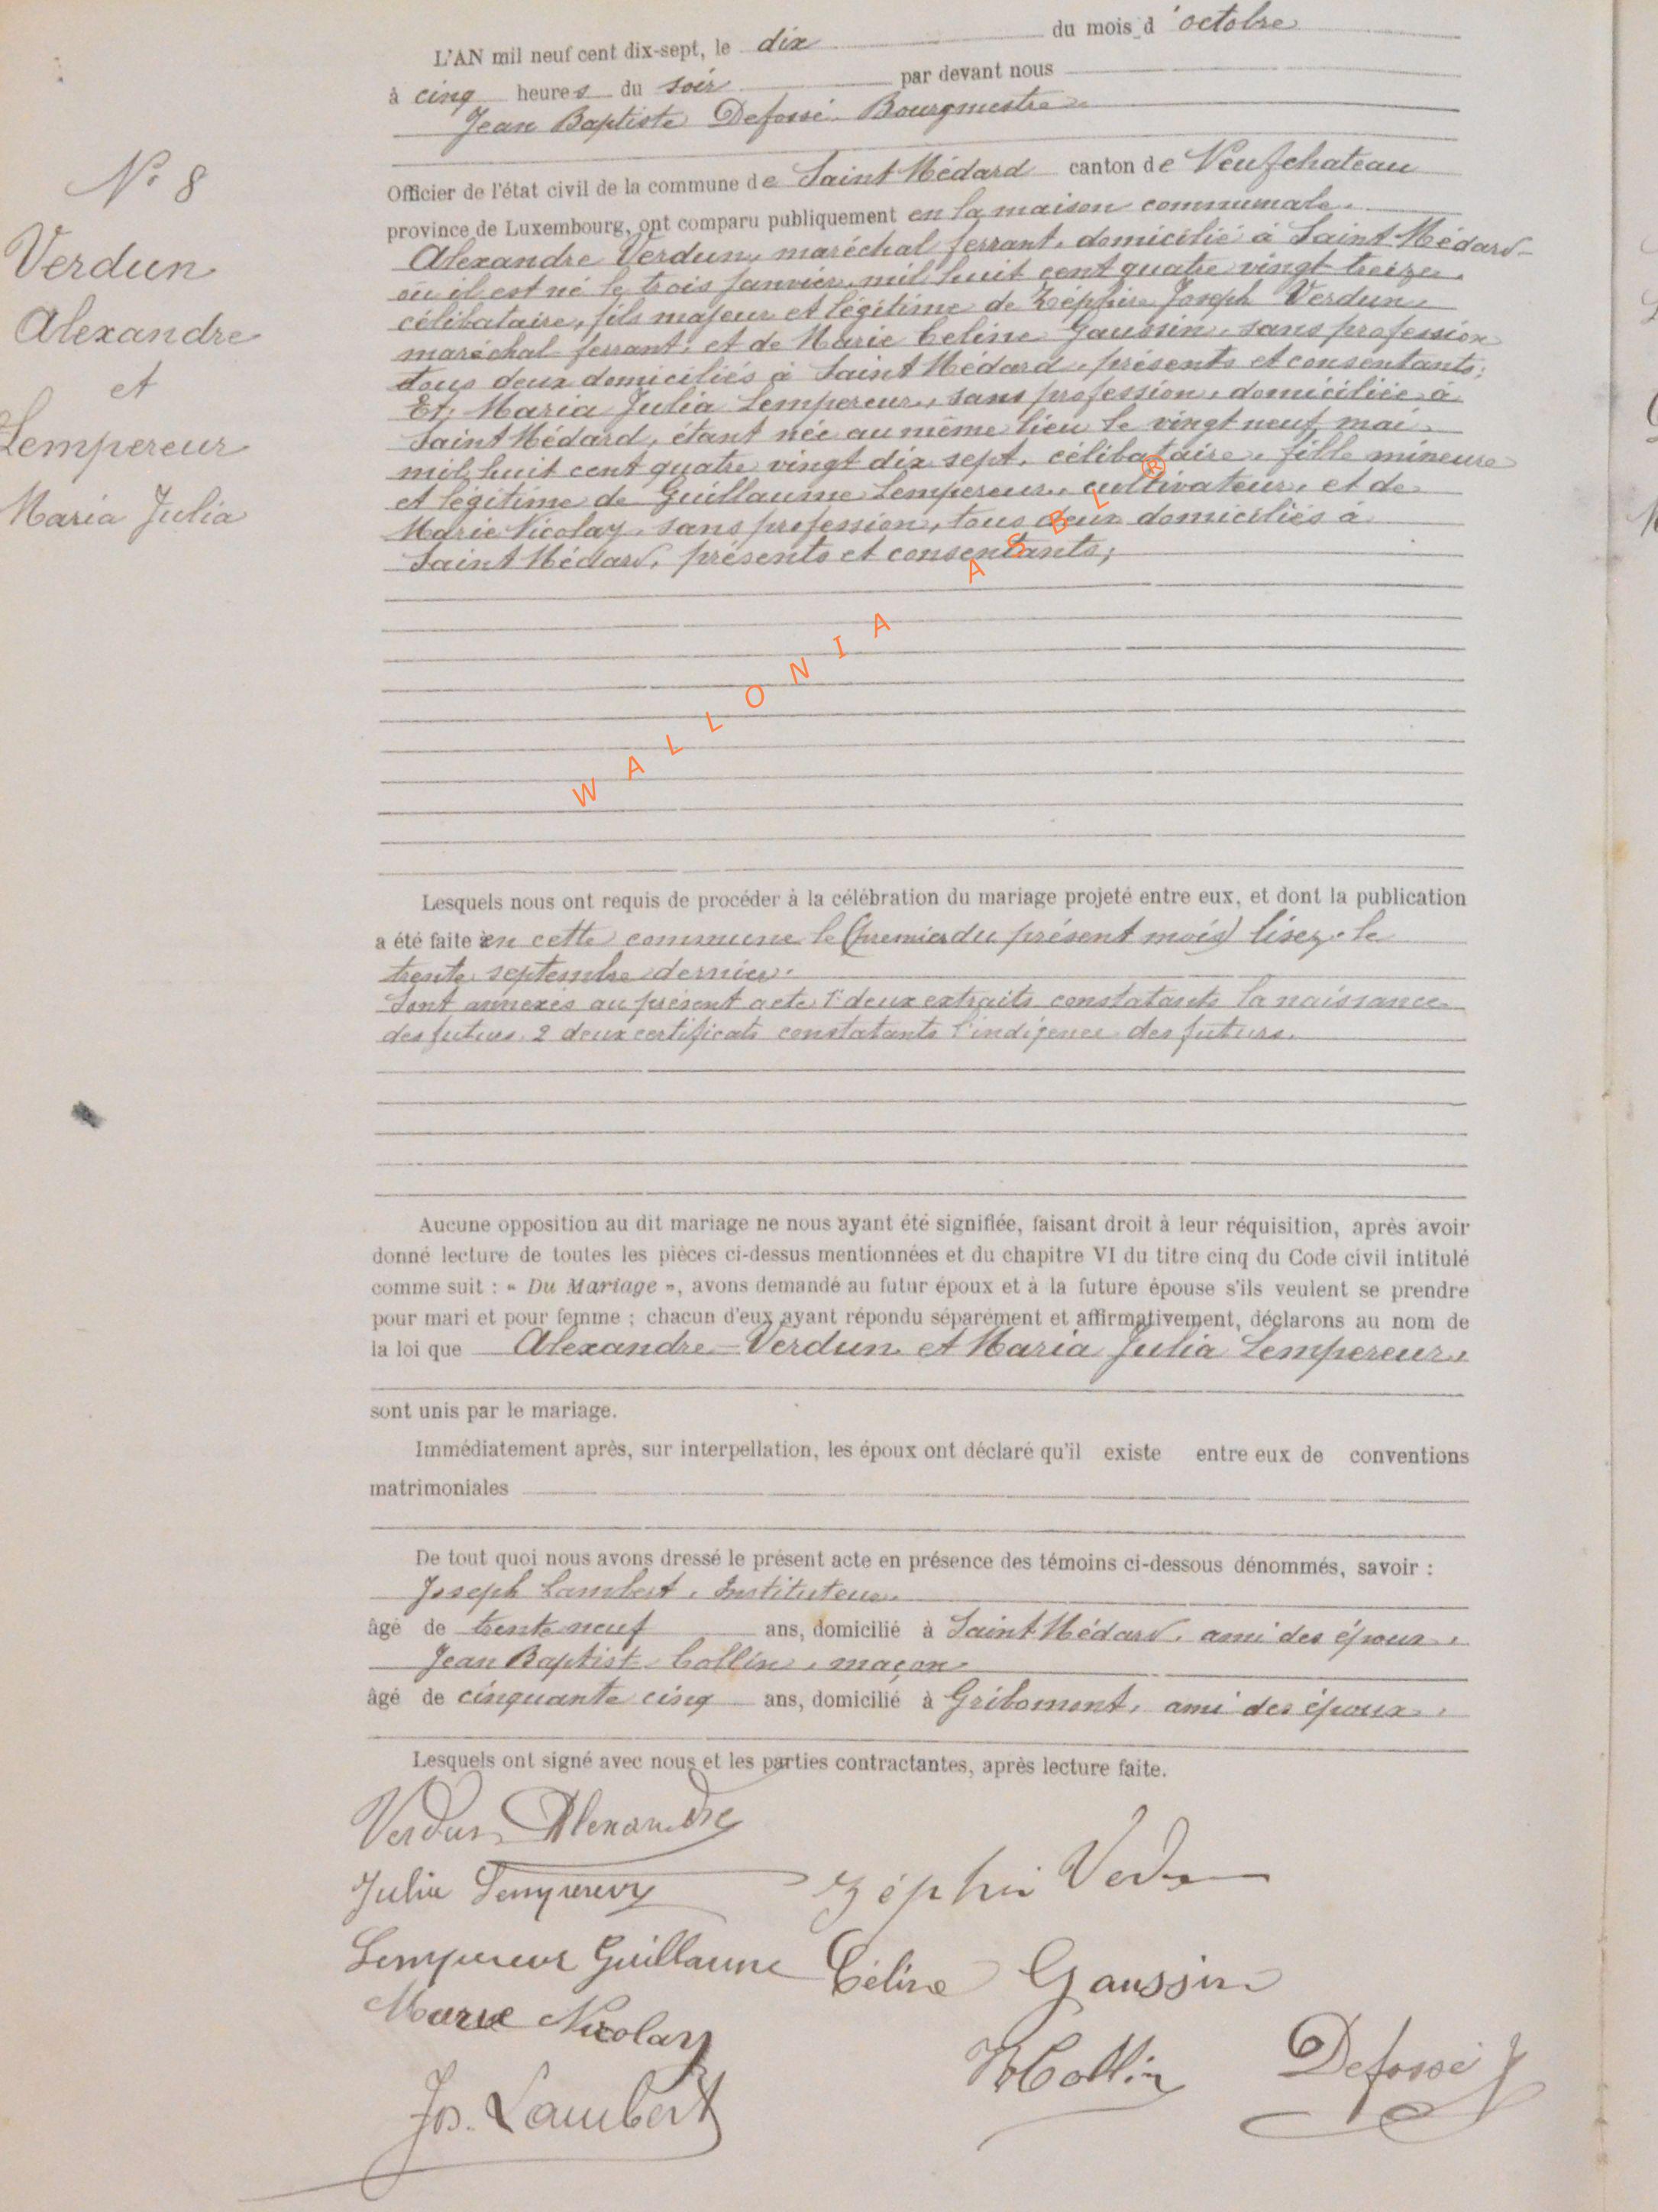 L'AN mil neuf cent dix-sept, le dix du mois d'octobre
à cinq heures du soir par devant nous
Jean Baptiste Defossé Bourgmestre
Officier de l'état civil de la commune de Saint Médard canton de Neufchateau
province de Luxembourg, ont comparu publiquement en la maison communale.
Alexandre Verdun, maréchal ferrant, domicilié à Saint Médard
où il est né le trois janvier mil huit cent quatre vingt treize,
célibataire, fils majeur et légitime de Zéphire Joseph Verdun,
maréchal ferrant, et de Marie Celine Gaussin, sans profession
tous deux domiciliés à Saint Médard, présents et consentants;
Et, Maria Julia Lempereur, sans profession, domiciliée à
Saint Médard, étant née au même lieu le vingt neuf mai
mil huit cent quatre vingt dix sept, célibataire, fille mineure
et légitime de Guillaume Lempereur, cultivateur, et de
Marie Nicolay, sans profession, tous deux domiciliés à
Saint Médard, présents et consentants;
N° 8
Verdun
Alexandre
et
Lempereur
Maria Julia
WALLONIA ASBL ®
Lesquels nous ont requis de procéder à la célébration du mariage projeté entre eux, et dont la publication
a été faite en cette commune le (premier du présent mois) lisez le
trente septembre dernier.
Sont annexés au présent acte 1° deux extraits constatants la naissance
des futurs 2 deux certificats constatants l'indigence des futurs.
Aucune opposition au dit mariage ne nous ayant été signifiée, faisant droit à leur réquisition, après avoir
donné lecture de toutes les pièces ci-dessus mentionnées et du chapitre VI du titre cinq du Code civil intitulé
comme suit : « Du Mariage », avons demandé au futur époux et à la future épouse s'ils veulent se prendre
pour mari et pour femme ; chacun d'eux ayant répondu séparément et affirmativement, déclarons au nom de
la loi que Alexandre Verdun et Maria Julia Lempereur,
sont unis par le mariage.
Immédiatement après, sur interpellation, les époux ont déclaré qu'il existe entre eux de conventions
matrimoniales
De tout quoi nous avons dressé le présent acte en présence des témoins ci-dessous dénommés, savoir :
Joseph Lambert, Instituteur
âgé de trente neuf ans, domicilié à Saint Médard, ami des époux,
Jean Baptist Collin, maçon
âgé de cinquante cinq ans, domicilié à Gribomont, ami des époux,
Lesquels ont signé avec nous et les parties contractantes, après lecture faite.
Verdun Alexandre
Julia Lempereur Zéphir Verdun
Lempereur Guillaume Céline Gaussin
Marie Nicolay
Collin Defossé
Jos. Lambert